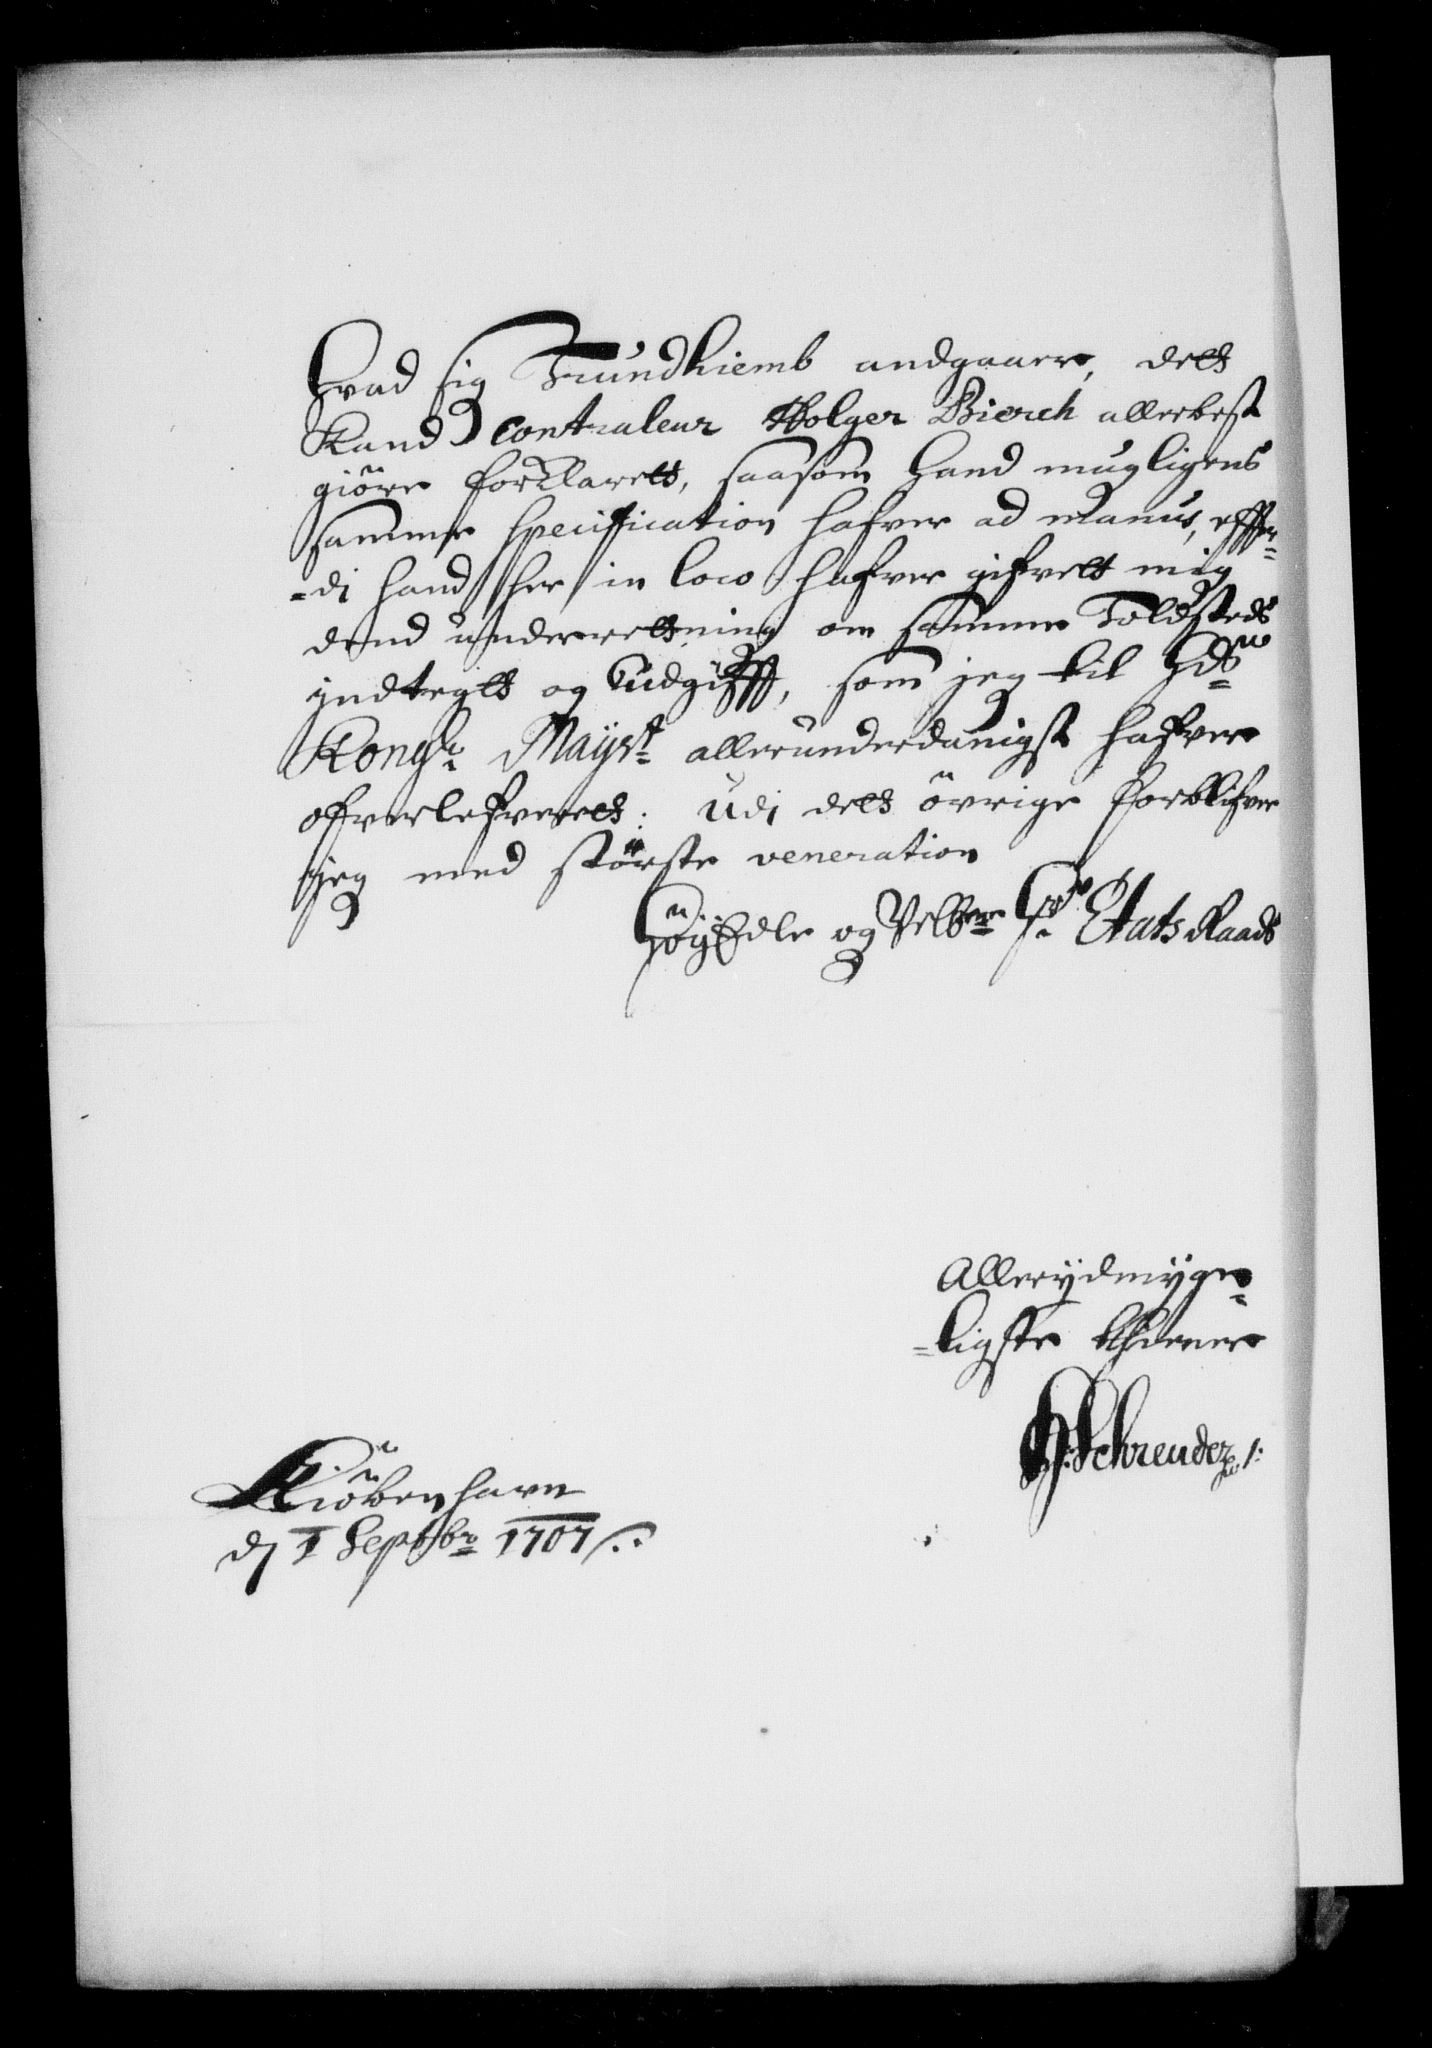 Hvad sig Trundhiemb andgaaer, dett
kand Contraleur Holger Bierch allerbest
giöre forklarett, saasom hand mugligens
samme Specification hafver ad manus, effter-
-di hand her in loco hafver gifvett mig
dend underrettning om samme Toldsteds
jndtegtt og Uudgifft, som jeg til
Kongl: Mayst: allerunderdanigst hafver
ofverlefverett: Udj dett övrige forblifver
jeg med störste veneration
HöyEdle og Velb:ne Hr: Etats Raads
Allerydmyge-
-ligste thienere
H: Schreuder
Kiöbenhavn
dj 1 Septbr: 1707